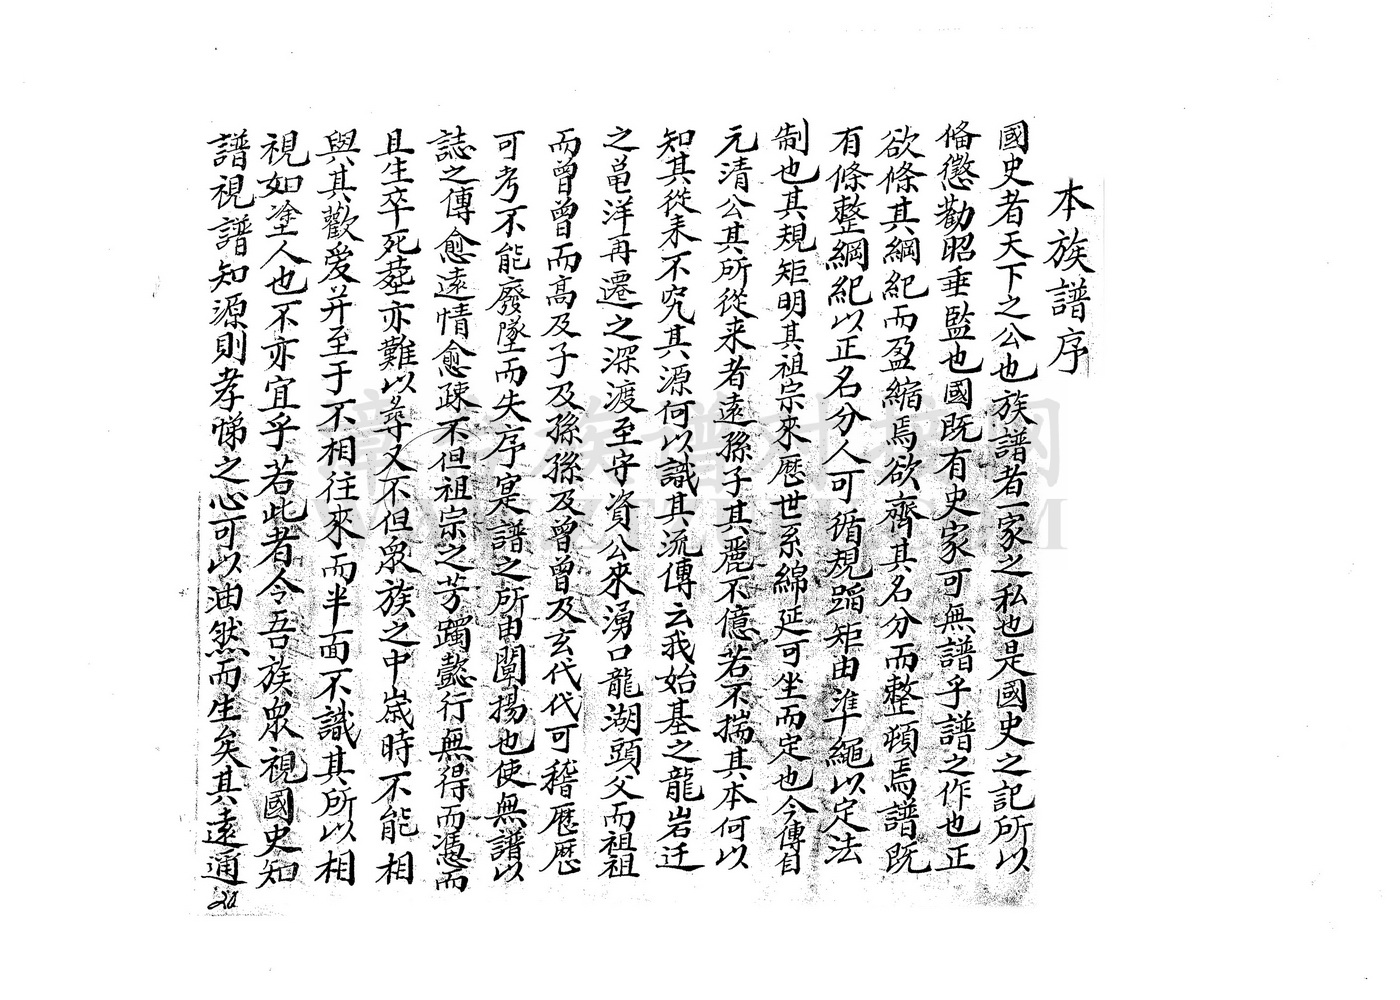 本族譜序
國史者天下之公也族譜者一家之私也是國史之記所以
俻懲勸昭垂監也國既有史家可無譜乎譜之作也正
欲條其綱紀而盈縮焉欲齊其名分而整頓焉譜既
有條整綱紀以正名分人可循規蹈矩由準繩以定法
制也其規矩明其祖宗來歷世系綿延可坐而定也今傳自
元清公其所從来者遠孫子其麗不億若不揣其本何以
知其從耒不究其源何以識其流傳云我始基之龍岩迁
之黾洋再遷之深渡至守資公來湧口龍湖頭父而祖祖
而曾曾而高及子及孫孫及曾曾及玄代代可稽歷歷
可考不能廢墜而失序寔譜之所由闡揚也使無譜以
誌之傳愈遠情愈疎不但祖宗之芳躅懿行無得而憑而
且生卒死塟亦難以尋又不但眾族之中歲時不能相
與其歡爱并至于不相往來而半面不識其所以相
視如塗人也不亦宜乎若此者今吾族眾視國史知
譜視譜知源則孝悌之心可以油然而生矣其遠通